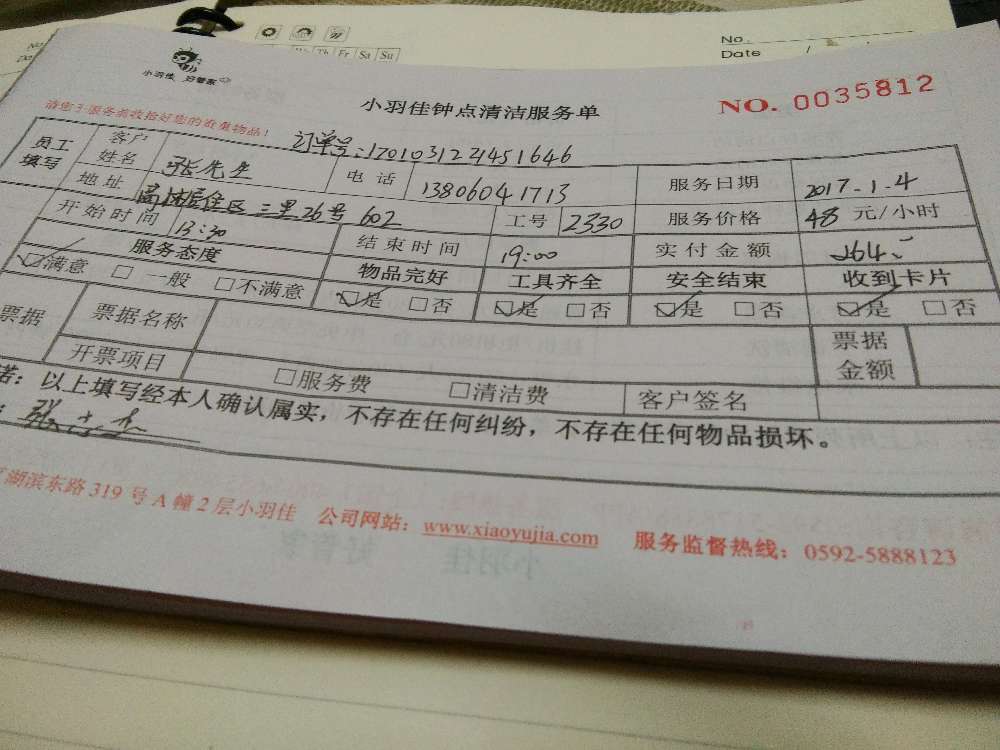 No.
Date /
Th Fr Sa Su
小羽佳 好管家
小羽佳钟点清洁服务单
NO. 0035812
请您于服务前收拾好您的贵重物品!
订单号:170103122451646
员工填写 客户姓名 张先生 电话 13806041713 服务日期 2017.1.4
地址 高林居住区三里26号602 工号 2330 服务价格 48 元/小时
开始时间 13:30 结束时间 19:00 实付金额 264
服务态度 物品完好 工具齐全 安全结束 收到卡片
☑满意 □一般 □不满意 ☑是 □否 ☑是 □否 ☑是 □否 ☑是 □否
票据 票据名称 票据金额
开票项目 □服务费 □清洁费 客户签名
诺:以上填写经本人确认属实,不存在任何纠纷,不存在任何物品损坏。
湖滨东路319号A幢2层小羽佳 公司网站:www.xiaoyujia.com 服务监督热线:0592-5888123